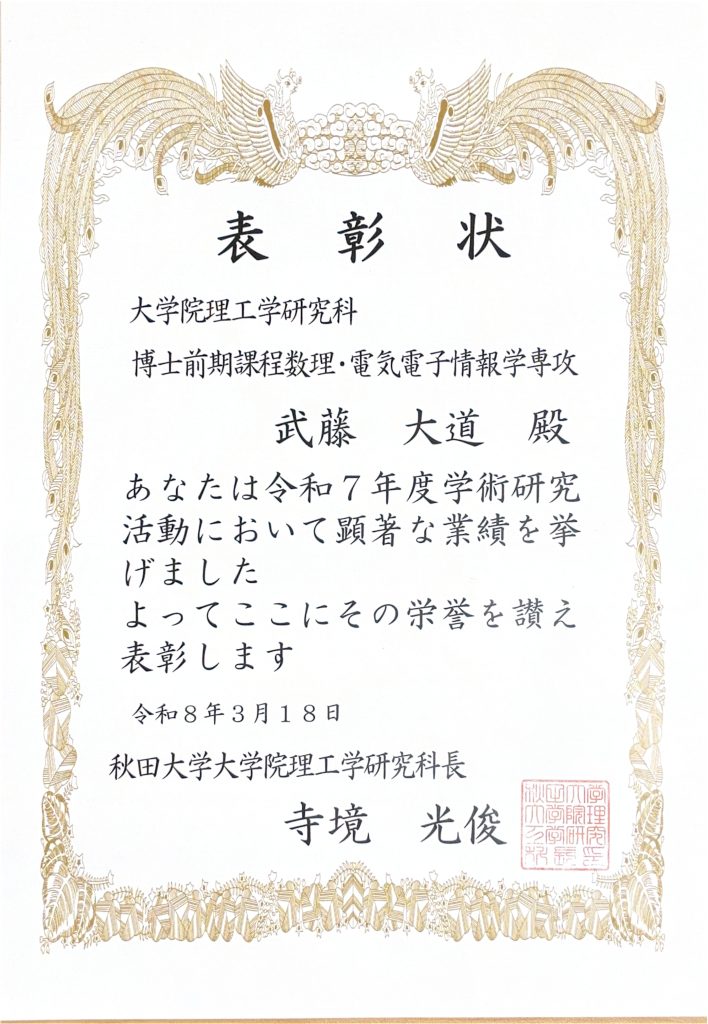 表彰状
大学院理工学研究科
博士前期課程数理・電気電子情報学専攻
武藤 大道 殿
あなたは令和７年度学術研究
活動において顕著な業績を挙
げました
よってここにその栄誉を讃え
表彰します
令和８年３月１８日
秋田大学大学院理工学研究科長
寺境 光俊